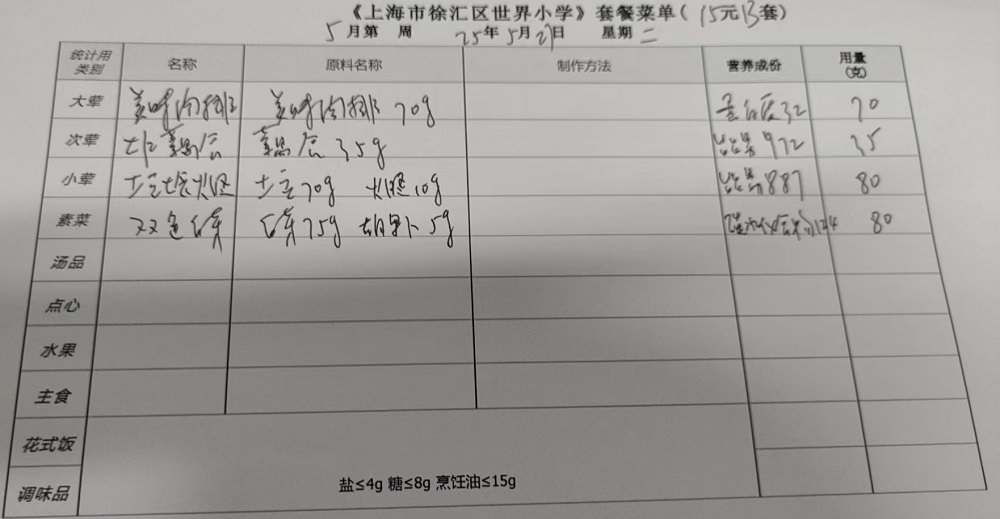 《上海市徐汇区世界小学》套餐菜单(15元B套)
5月第 周 25年5月27日 星期二
统计用类别 名称 原料名称 制作方法 营养成份 用量(克)
大荤 美味肉排 美味肉排 70g 蛋白质32 70
次荤 35g 972 35
小荤 土豆烧火腿 土豆70g 火腿10g 887 80
素菜 双色白菜 白菜75g 胡萝卜5g 124 80
汤品
点心
水果
主食
花式饭
调味品 盐≤4g 糖≤8g 烹饪油≤15g